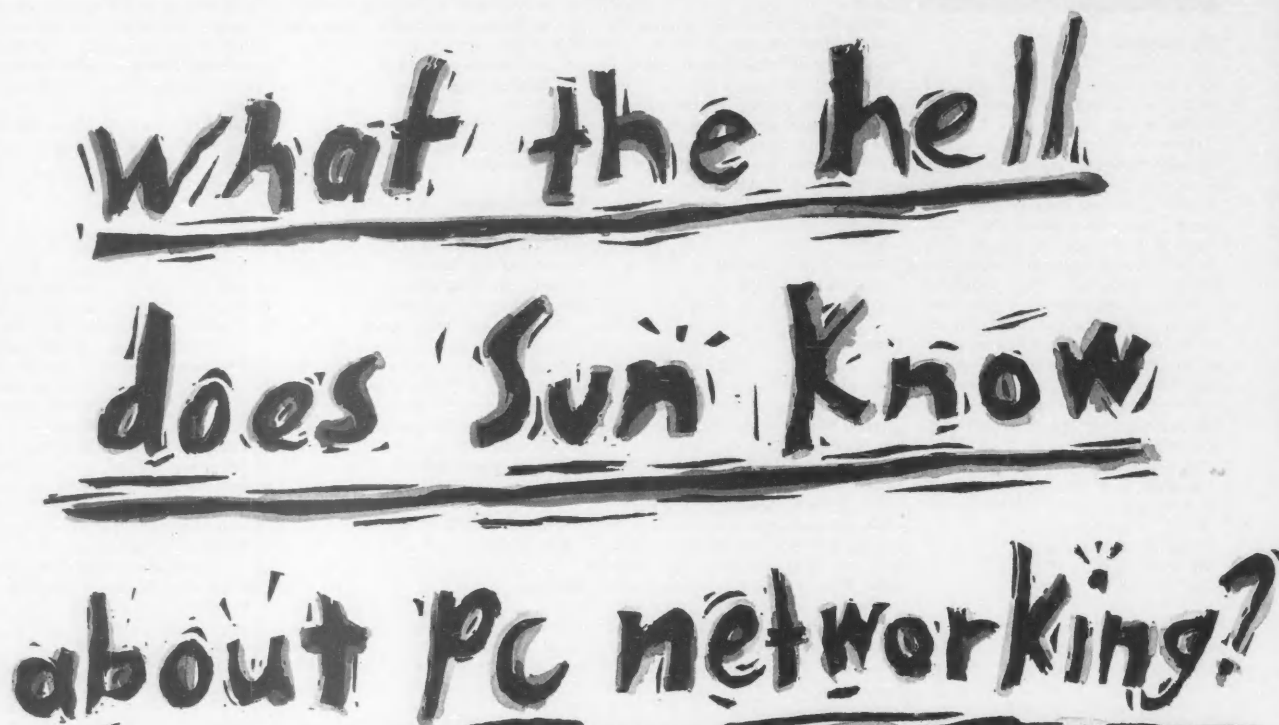 what the hell
does Sun Know
about PC networking?